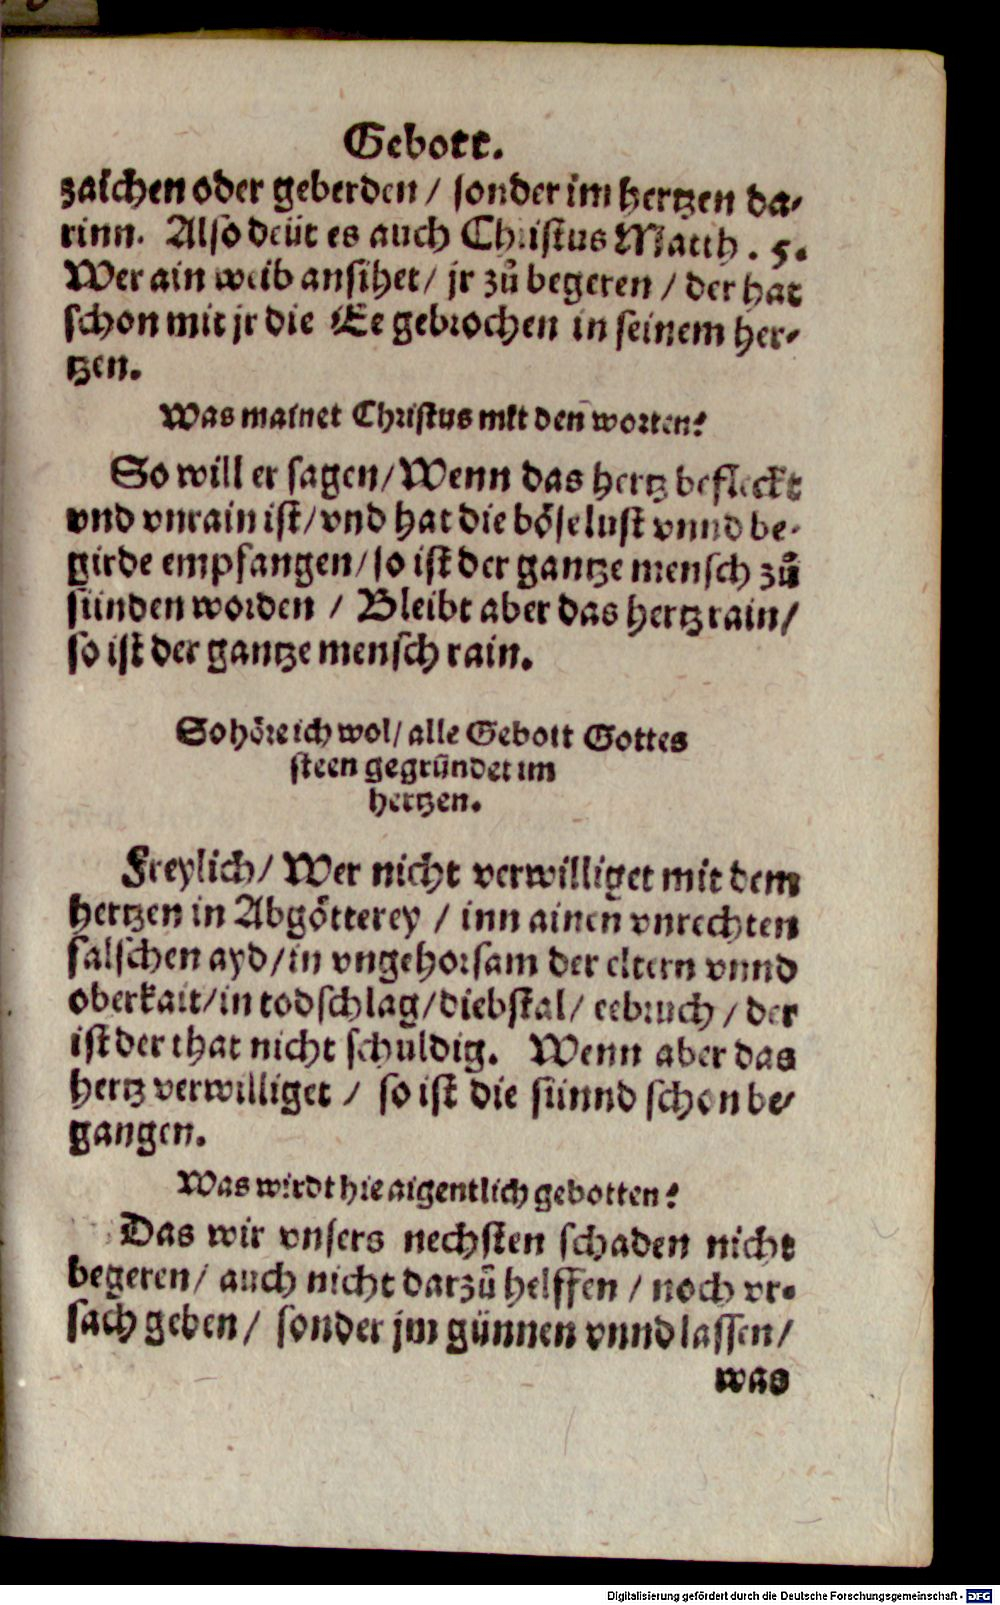 Gebott.
zaichen oder geberden / sonder im hertzen da⸗
rinn. Also deüt es auch Christus Matth . 5.
Wer ain weib ansihet / jr zů begeren / der hat
schon mit jr die Ee gebrochen in seinem her⸗
tzen.
Was mainet Christus mit den worten?
So will er sagen / Wenn das hertz befleckt
vnd vnrain ist / vnd hat die böse lust vnnd be⸗
girde empfangen / so ist der gantze mensch zů
sünden worden / Bleibt aber das hertz rain /
so ist der gantze mensch rain.
So höre ich wol / alle Gebott Gottes
steen gegründet im
hertzen.
Freylich / Wer nicht verwilliget mit dem
hertzen in Abgötterey / inn ainen vnrechten
falschen ayd / in vngehorsam der eltern vnnd
oberkait / in todschlag / diebstal / eebruch / der
ist der that nicht schuldig. Wenn aber das
hertz verwilliget / so ist die sünnd schon be⸗
gangen.
Was wirdt hie aigentlich gebotten?
Das wir vnsers nechsten schaden nicht
begeren / auch nicht darzů helffen / noch vr⸗
sach geben / sonder jm günnen vnnd lassen /
was
Digitalisierung gefördert durch die Deutsche Forschungsgemeinschaft - DFG